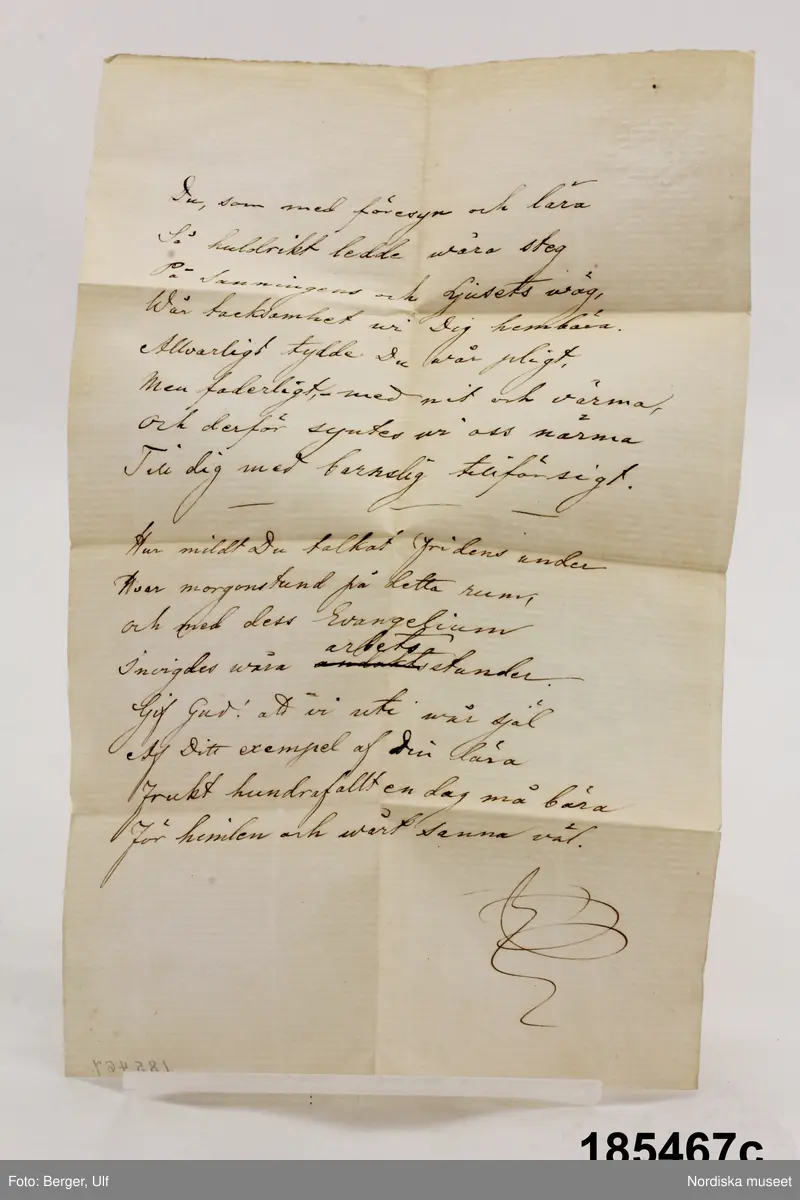 Du, som med föresyn och lära
Så huldrikt ledde wåra steg
På Sanningens och Ljusets wäg,
Wår tacksamhet wi Dig hembära.
Allvarligt tydde Du wår pligt,
Men faderligt, – med nit och värma,
Och derför syntes wi oss närma
Till dig med barnslig tillförsigt.
Hur mildt Du tolkat Fridens under
Hvar morgonstund på detta rum,
och med dess Evangelium
arbets
Invigdes wåra andaktsstunder.
Gif Gud! att vi uti wår själ
Af Ditt exempel af Din lära
Frukt hundrafallt en dag må bära
För himlen och wårt sanna väl.
185467
185467c
Foto: Berger, Ulf
Nordiska museet